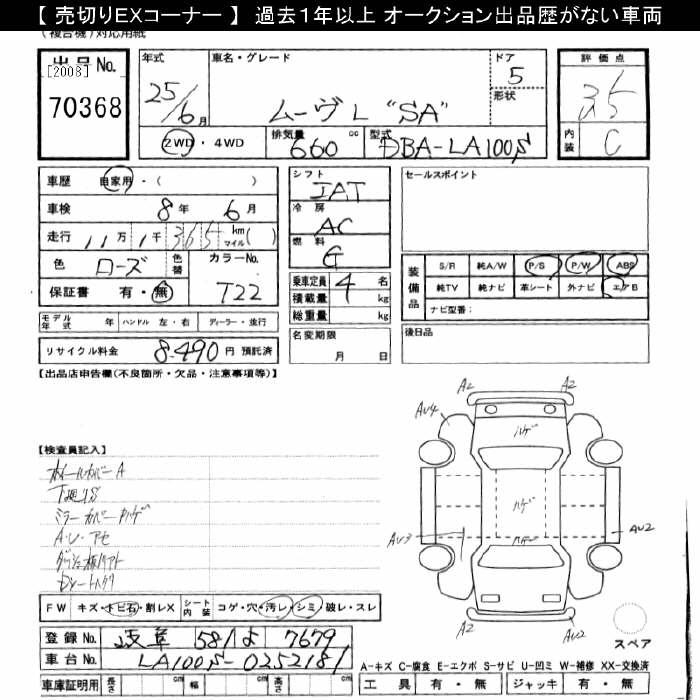 【 売切りEXコーナー 】 過去1年以上 オークション出品歴がない車両
(複合機)対応用紙
出品No.
[2008]
70368
年式 25/6月
車名・グレード ムーヴ L "SA"
ドア 5
形状
2WD・4WD
排気量 660 cc
型式 DBA-LA100S
評価点
内装 C
車歴 自家用・( )
車検 8年 6月
走行 11万 1千 365 km マイル( )
色 ローズ
色替
カラーNo. T22
保証書 有・無
モデル年式 年 ハンドル 左・右 ディーラー・並行
リサイクル料金 8,490 円 預託済
シフト IAT
冷房 AC
燃料 G
乗車定員 4 名
積載量 kg
総重量 kg
名変期限 月 日
セールスポイント
装備品
S/R 純A/W P/S P/W ABS
純TV 純ナビ 革シート 外ナビ エアB
ナビ型番:
後日品
【出品店申告欄(不良箇所・欠品・注意事項等)】
【検査員記入】
ホイールカバーA
ミラーカバーハゲ
A・U・アセ
A2
A2
AU4
ハゲ
ハゲ
ハゲ
AU3
AU2
A2
AU2
スペア
FW キズ・トビ石・割レX シート内装 コゲ・穴・汚レ・シミ・破レ・スレ
登録No. 岐阜 581 よ 7679
車台No. LA100S-0252181
車庫証明用 長さ cm 幅 cm 高さ cm
A-キズ C-腐食 E-エクボ S-サビ U-凹ミ W-補修 XX-交換済
工具 有・無 ジャッキ 有・無